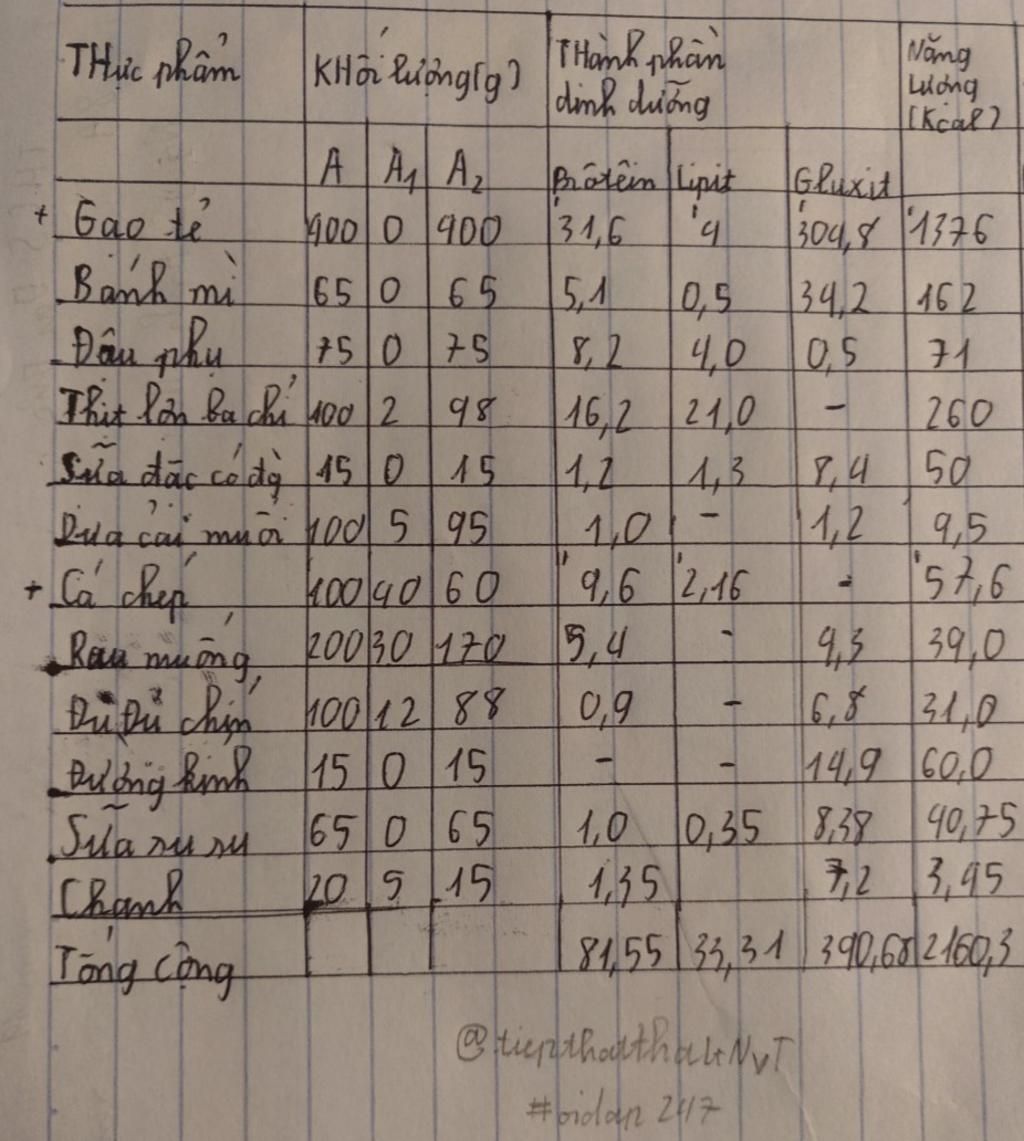 Thực phẩm Khối lượng(g) Thành phần dinh dưỡng Năng lượng (Kcal)
A A1 A2 Prôtêin Lipit Gluxit
+ Gạo tẻ 400 0 400 31,6 4 304,8 1376
Bánh mì 65 0 65 5,1 0,5 34,2 162
Đậu phụ 75 0 75 8,2 4,0 0,5 71
Thịt lợn ba chỉ 100 2 98 16,2 21,0 - 260
Sữa đặc có đg 15 0 15 1,2 1,3 8,4 50
Dưa cải muối 100 5 95 1,0 - 1,2 9,5
+ Cá chép 100 40 60 9,6 2,16 - 57,6
Rau muống 200 30 170 5,4 - 4,3 39,0
Đu Đủ chín 100 12 88 0,9 - 6,8 31,0
Đường kính 15 0 15 - - 14,9 60,0
Sữa su su 65 0 65 1,0 0,35 8,38 40,75
Chanh 20 5 15 1,35 7,2 3,45
Tổng cộng 81,55 33,31 390,68 2160,3
#oidap 247